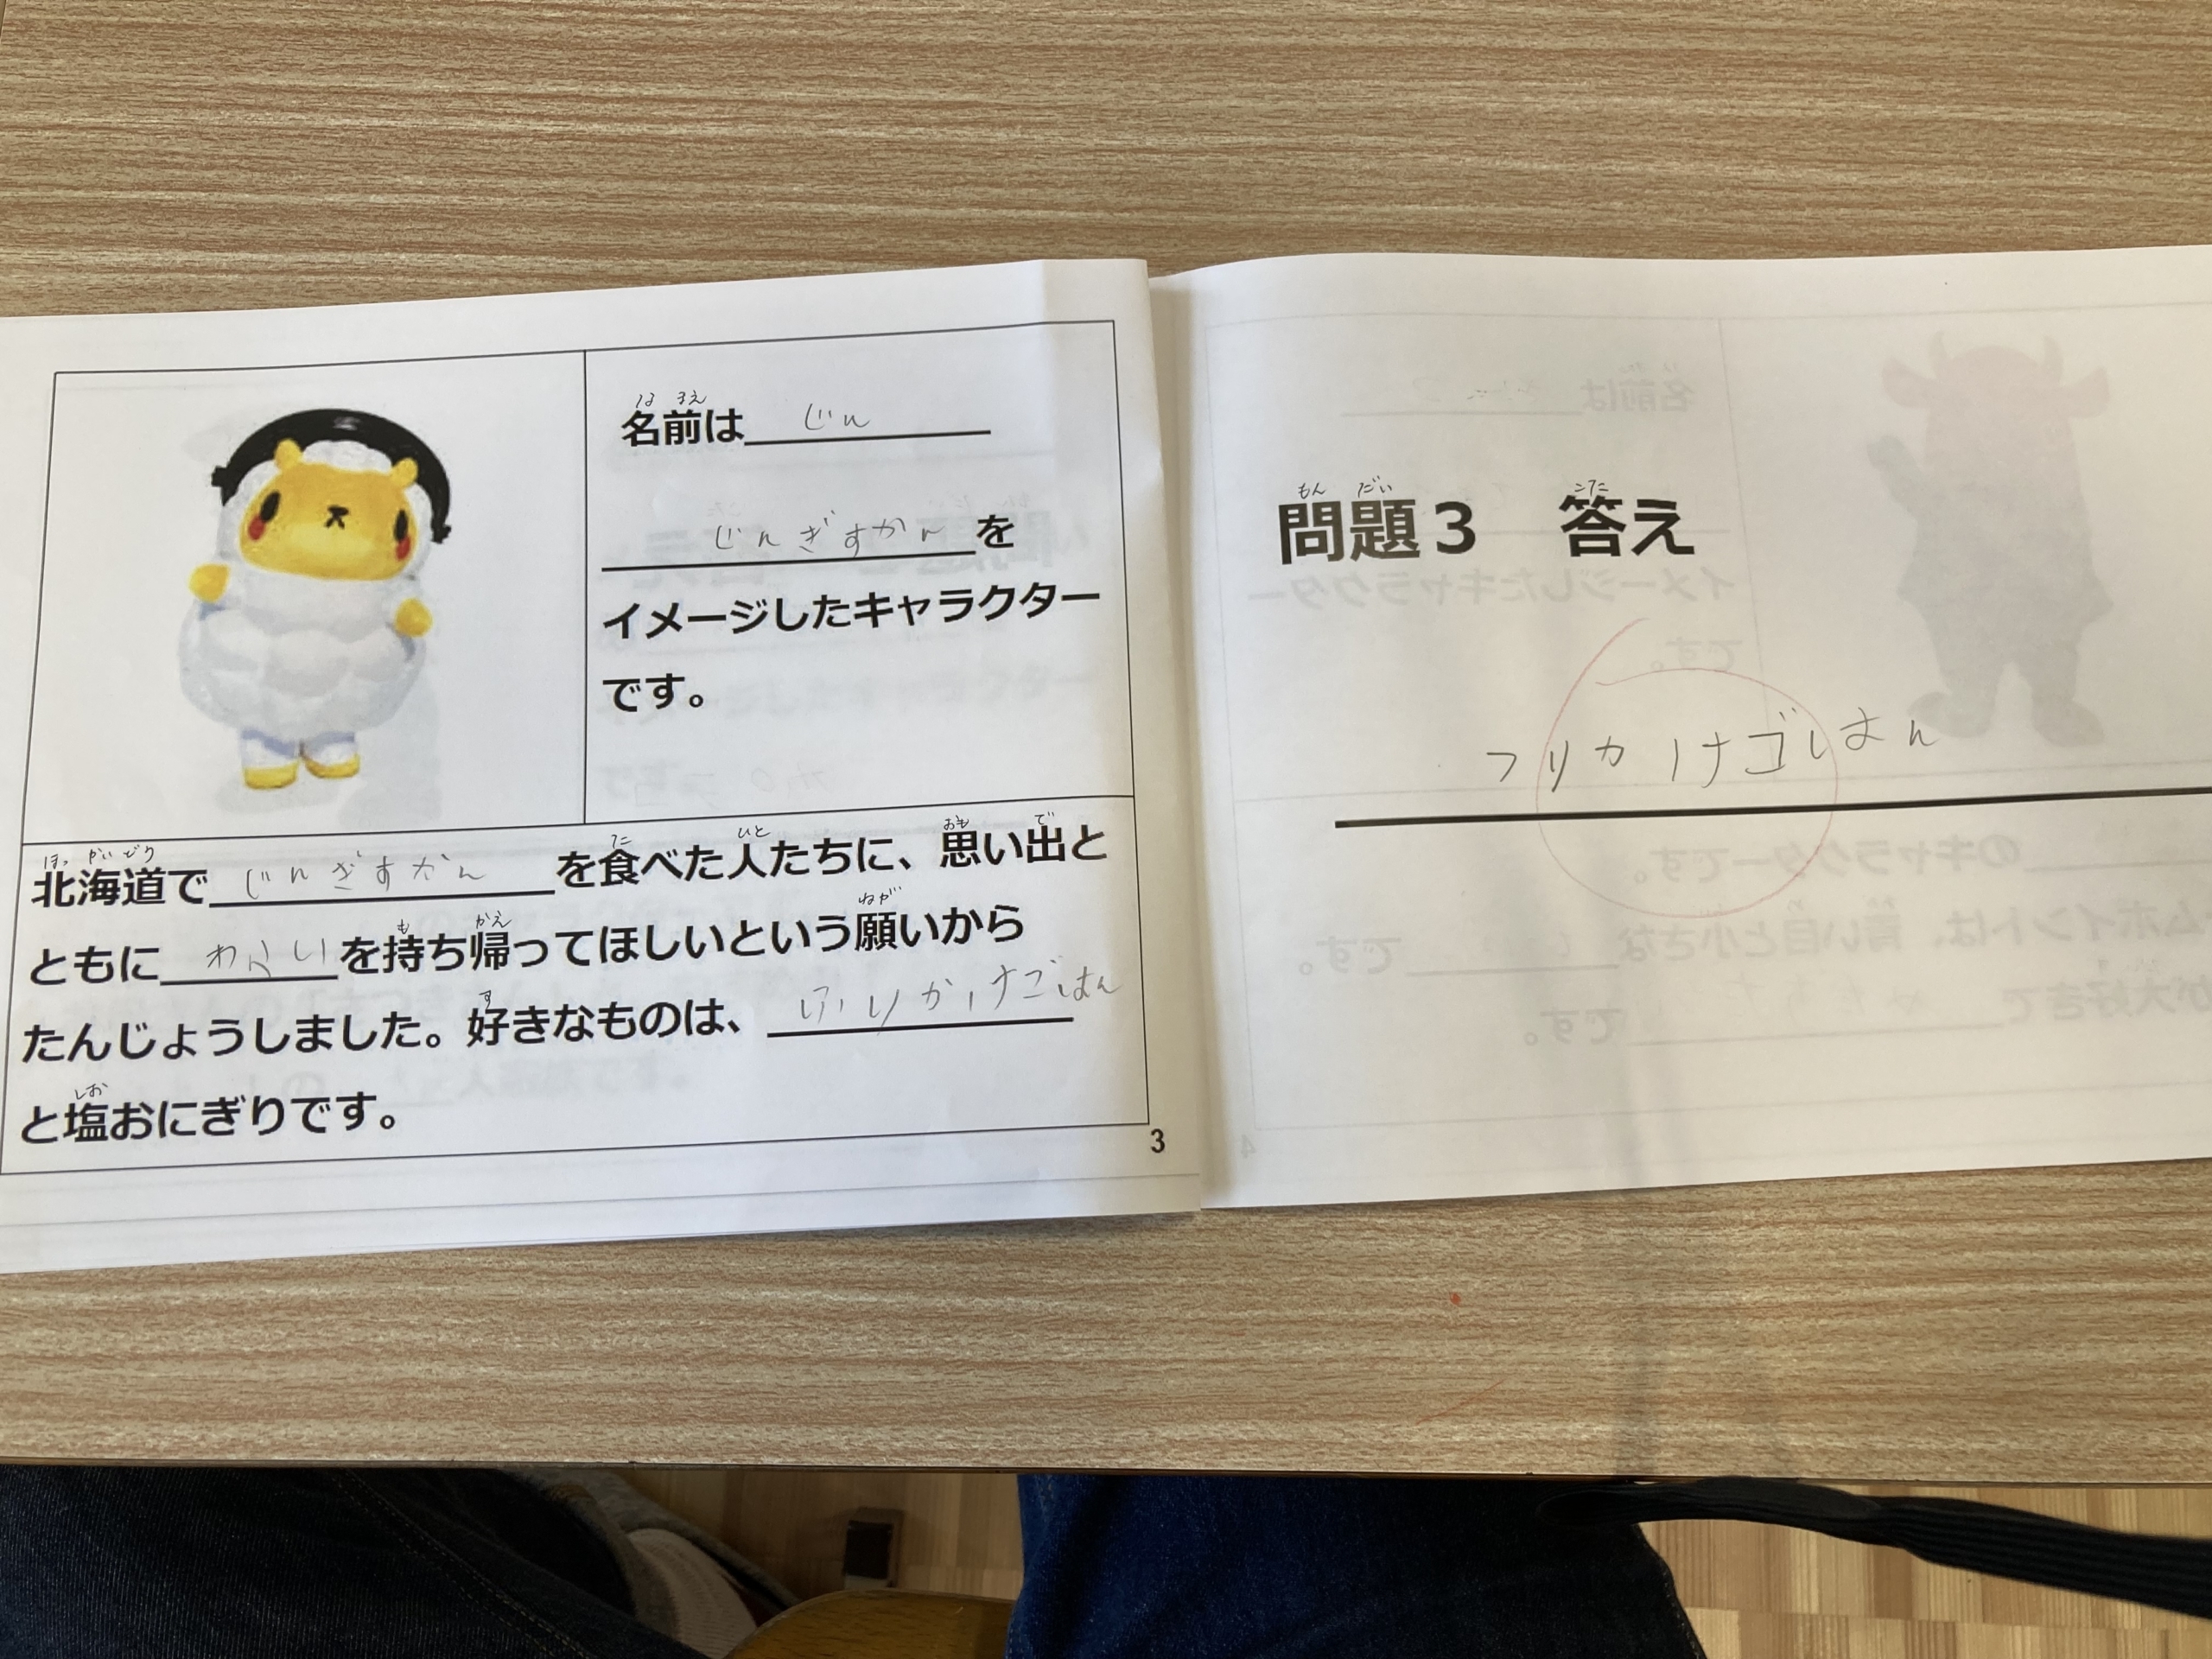 名前は じん
じんぎすかんを
イメージしたキャラクター
です。
北海道で じんぎすかん を食べた人たちに、思い出と
ともに わらい を持ち帰ってほしいという願いから
たんじょうしました。好きなものは、ふりかけごはん
と塩おにぎりです。
3
問題3 答え
フリカけゴはん